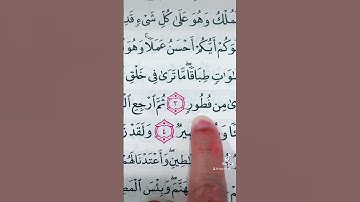 لْمُلْكُ وَهُوَ عَلَىٰ كُلِّ شَىْءٍ قَدِ
وَكُمْ أَيُّكُمْ أَحْسَنُ عَمَلًا ۚ وَهُوَ
وَٰتٍ طِبَاقًا ۖ مَّا تَرَىٰ فِى خَلْقِ
ىٰ مِن فُطُورٍ ٣ ثُمَّ ٱرْجِعِ ٱلْ
يرٌ ٤ وَلَقَدْ
طِينِ ۖ وَأَعْتَدْنَا لَهُمْ
هَنَّمَ ۖ وَبِئْسَ ٱلْمَص